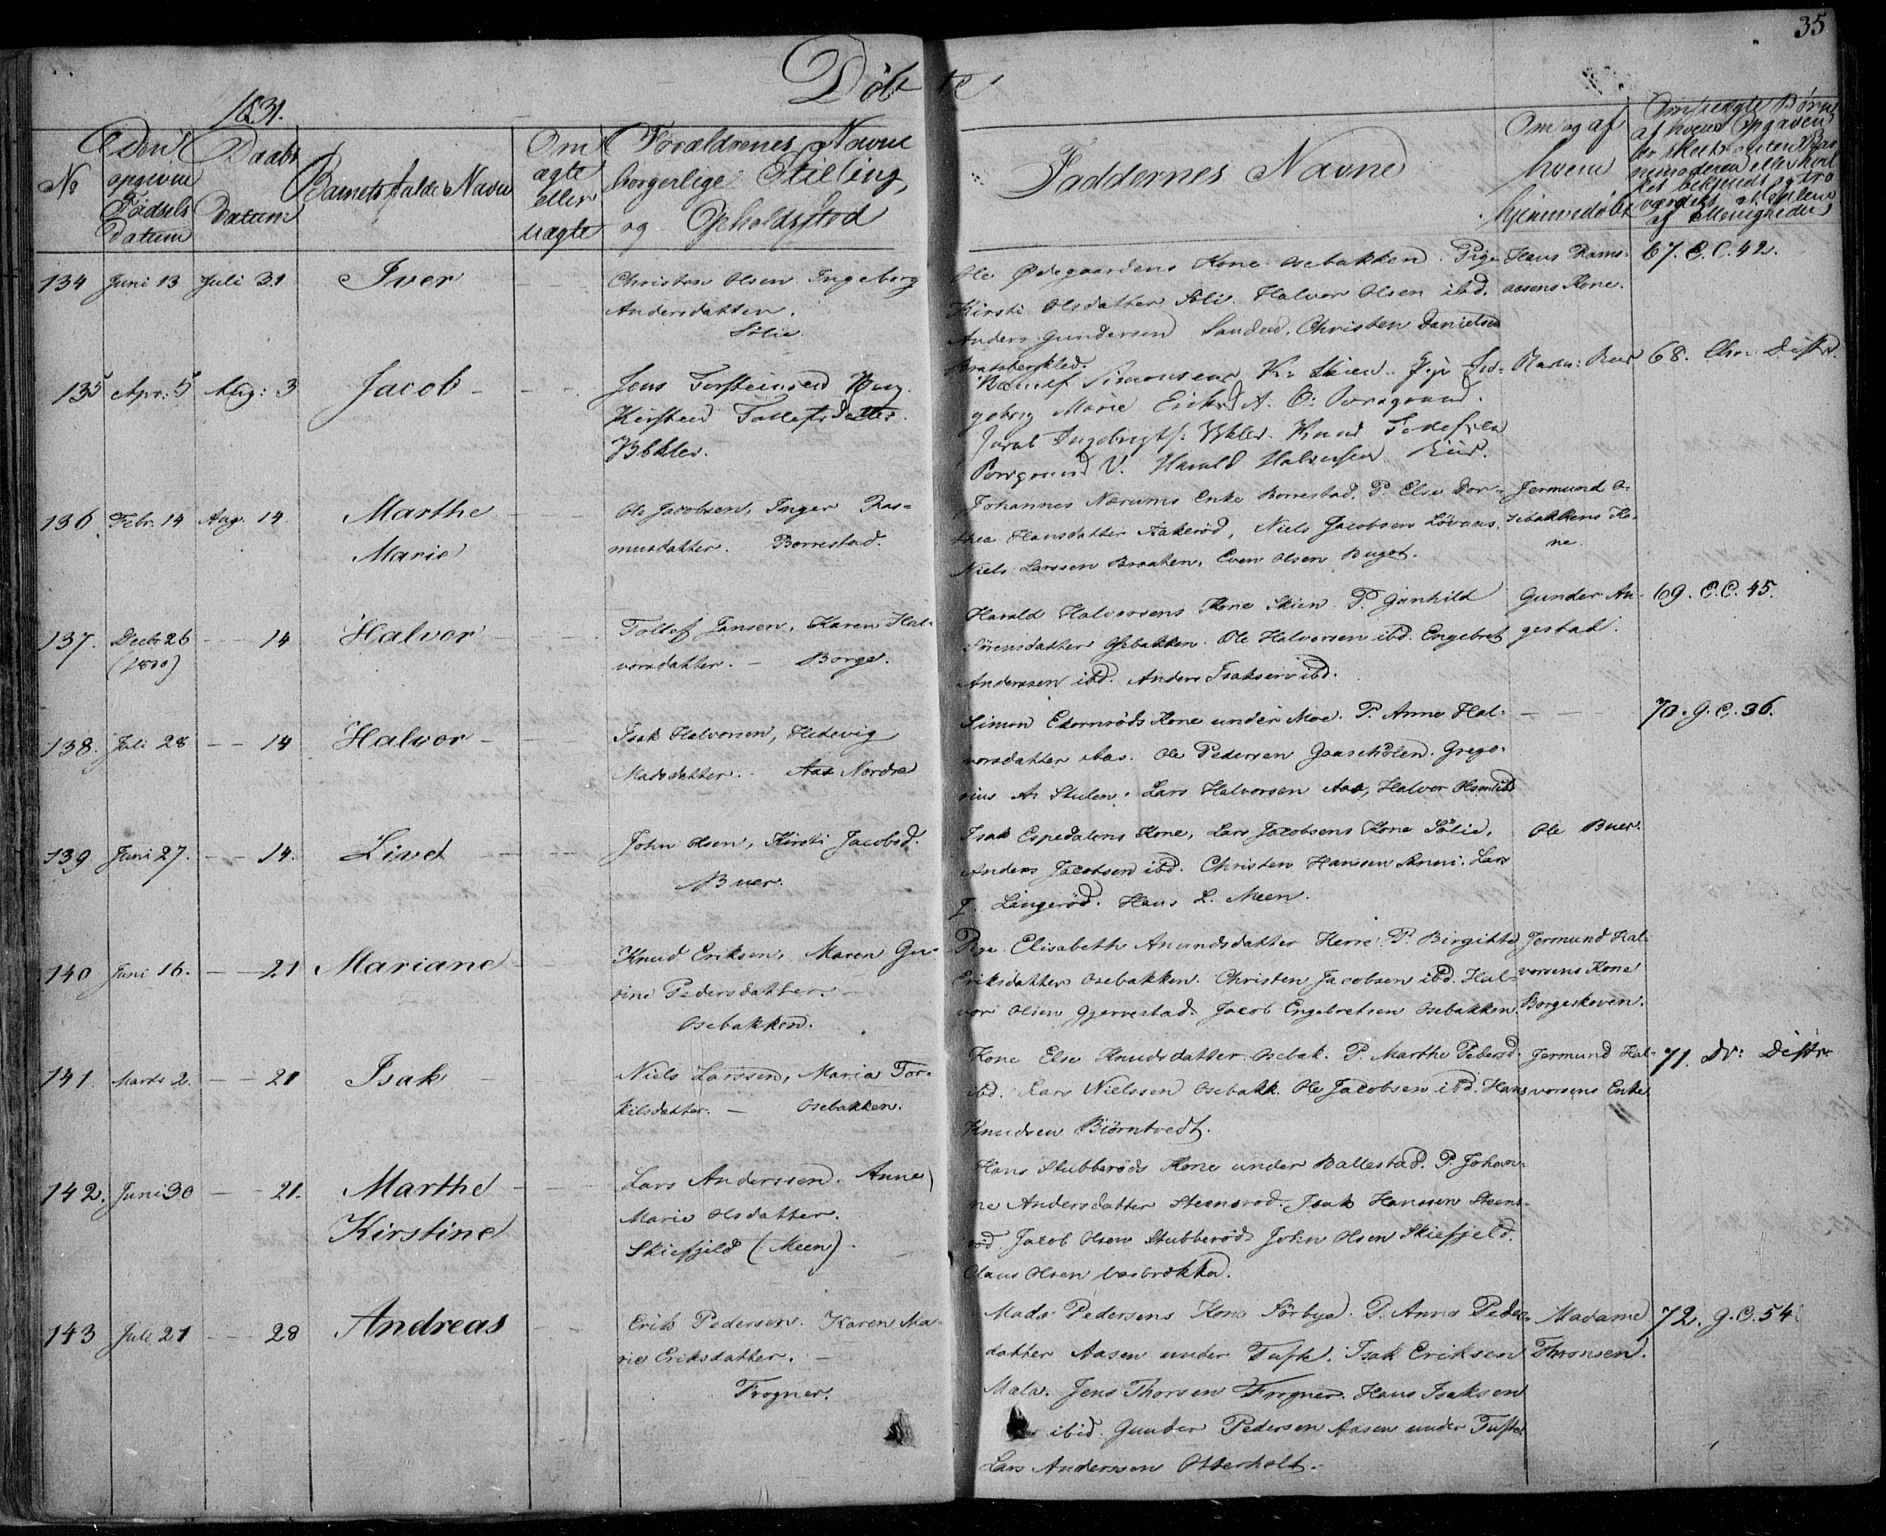 35
Døbte
1831.
No
Den opgivne Fødsels Datum
Daabs Datum
Barnets fulde Navn
Om ægte eller uægte
Forældrenes Navne borgerlige Stilling og Opholdssted
Faddernes Navne
Om og af hvem hjemmedøbt
134 Juni 13 Juli 31 Iver
Christen Olsen Ingeborg
Andersdatter.
Sølie
Ole Ødegaardens Kone Osebakken. Pige
Kirsti Olsdatter Sølie. Halvor Olsen ibd.
Anders Gundersen Sanden. Christen Danielsen
Bratsbergkled.
Hans Rams-
aasens Kone.
67. C. C. 42.
135 Apr: 5 Aug: 3 Jacob
Jens Torsteinsen
Kirsten Tollefsdatter
Simonsens K. Skien. Pige In-
geborg Marie
Porsgrund V. Harald Halvorsen
68. Distr.
136. Febr. 14 Aug. 14. Marthe
Marie
Ole Jacobsen, Inger Ras-
musdatter. Borrestad.
Johannes Nærums Enke Borrestad. P. Else Dor-
thea Hansdatter Aakerød, Niels Jacobsen
Niels Larssen Braaten, Even Olsen
Jermund O-
sebakkens Ko-
ne.
137. Decbr 26 (1830) 14 Halvor
Tollef Jansen, Karen Hal-
vorsdatter. Borge.
Harald Halvorsens Kone Skien. P. Gunhild
Sørensdatter Osebakken. Ole Halvorsen ibd. Engebret
Anderssen ibd. Anders Isaksen ibd.
Gunder An-
gestad.
69. C. C. 45.
138. Juli 28 14 Halvor
Isak Halvorsen, Hedevig
Madsdatter. Aas Nordre
Simon Ekornrøds Kone under Moe. P. Anne Hal-
vorsdatter Aas. Ole Pedersen Gaasehølen. Grego-
rius A. Stulen. Lars Halvorsen Aas, Halvor Olsen ibd
70. g. C. 36.
139 Juni 27. 14. Live
John Olsen, Kirsti Jacobsd.
Buer.
Isak Espedalens Kone, Lars Jacobsens Kone Sølie,
Anders Jacobsen ibd. Christen Hanssen Lars
Langerød. Hans L. Meen.
Ole Buer.
140 Juni 16. 21 Mariane
Knud Eriksen, Maren Gu-
rine Pedersdatter.
Osebakken.
Pige Elisabeth Amundsdatter Herre. P. Birgitte
Eriksdatter Osebakken. Christen Jacobsen ibd. Hal-
vor Olsen Gjerrestad. Jacob Engebretsen Osebakken.
Jermund Hal-
vorsens Kone
Borgeskoven.
141. Marts 2. 21 Isak
Niels Larssen, Maria Tor-
kilsdatter. Osebakken.
Kone Else Knudsdatter Osebak. P. Marthe Pedersd.
ibd. Lars Nielssen Osebakk. Ole Jacobsen ibd. Hans
Knudsen Biørntvedt.
Jermund Hal-
vorsens Enke
71. Dr: Distr.
142. Juni 30 21. Marthe
Kirstine
Lars Anderssen. Anne
Marie Olsdatter.
Skiefjeld (Meen).
Hans Stubberøds Kone under Ballestad. P. Johan-
ne Andersdatter Steensrød. Isak Hanssen Steens-
rød Jacob Olsen Stubberød John Olsen Skiefjeld.
Claus Olsen
143 Juli 21 28 Andreas
Erik Pedersen. Karen Ma-
rie Eriksdatter.
Frogner.
Mads Pedersens Kone Sørbye. P. Anne Peders-
datter Aasen under Tufte. Isak Eriksen
Mæla. Jens Thorsen Frogner. Hans Isaksen
ibid. Gunder Pedersen Aasen under Tufte
Lars Anderssen Otterholt.
Madame
Thronsen.
72. g. C. 54.